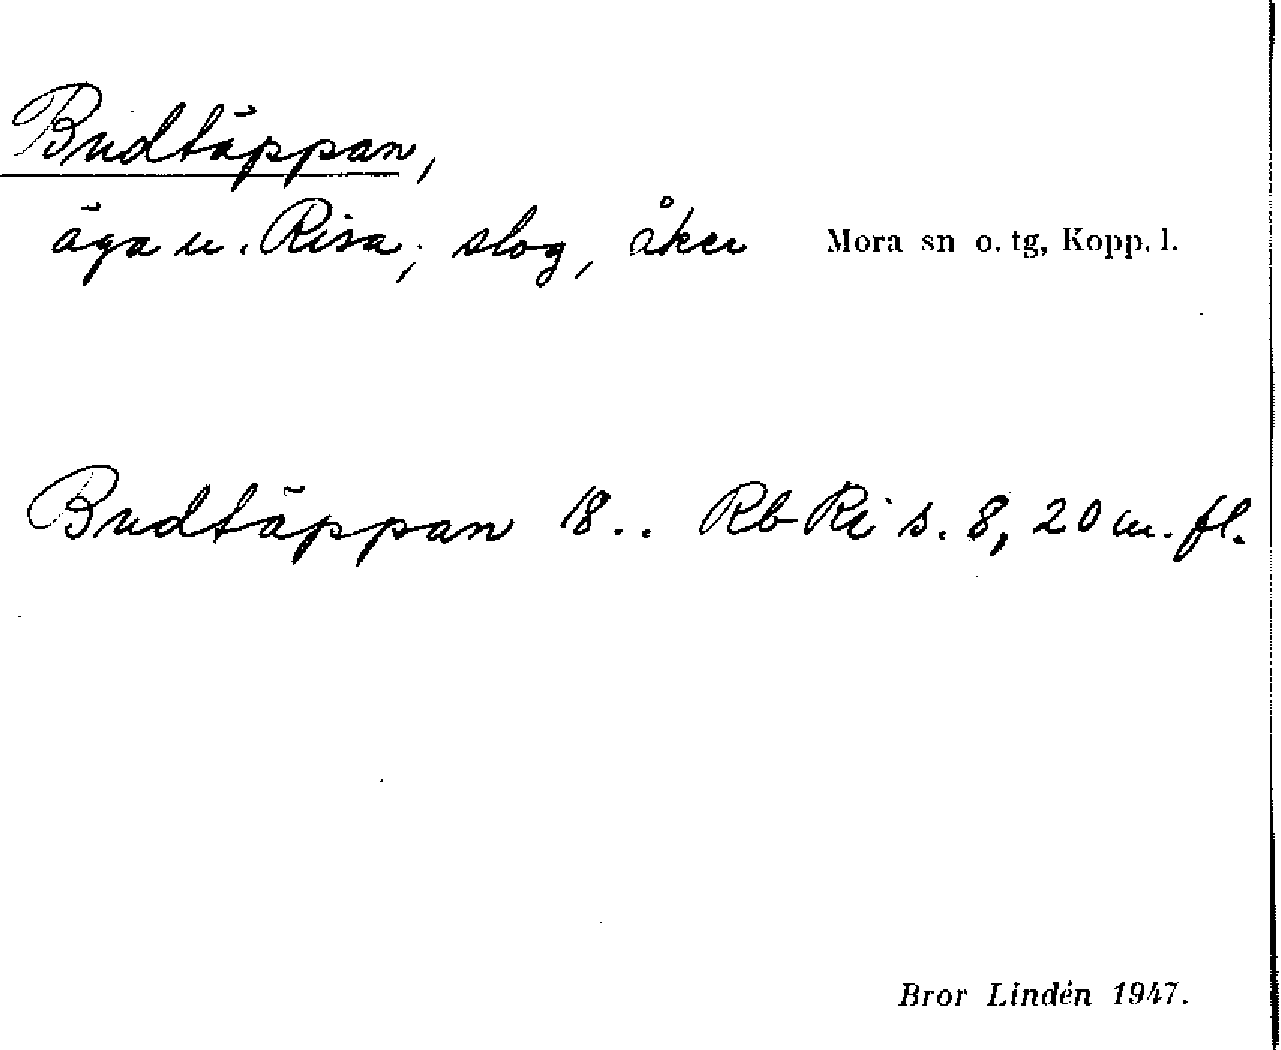 Budtäppan,
äga u. Risa; slog, åker Mora sn o. tg, Kopp. l.
Budtäppan 18.. Rb Ri s. 8, 20 m. fl.
Bror Lindén 1947.